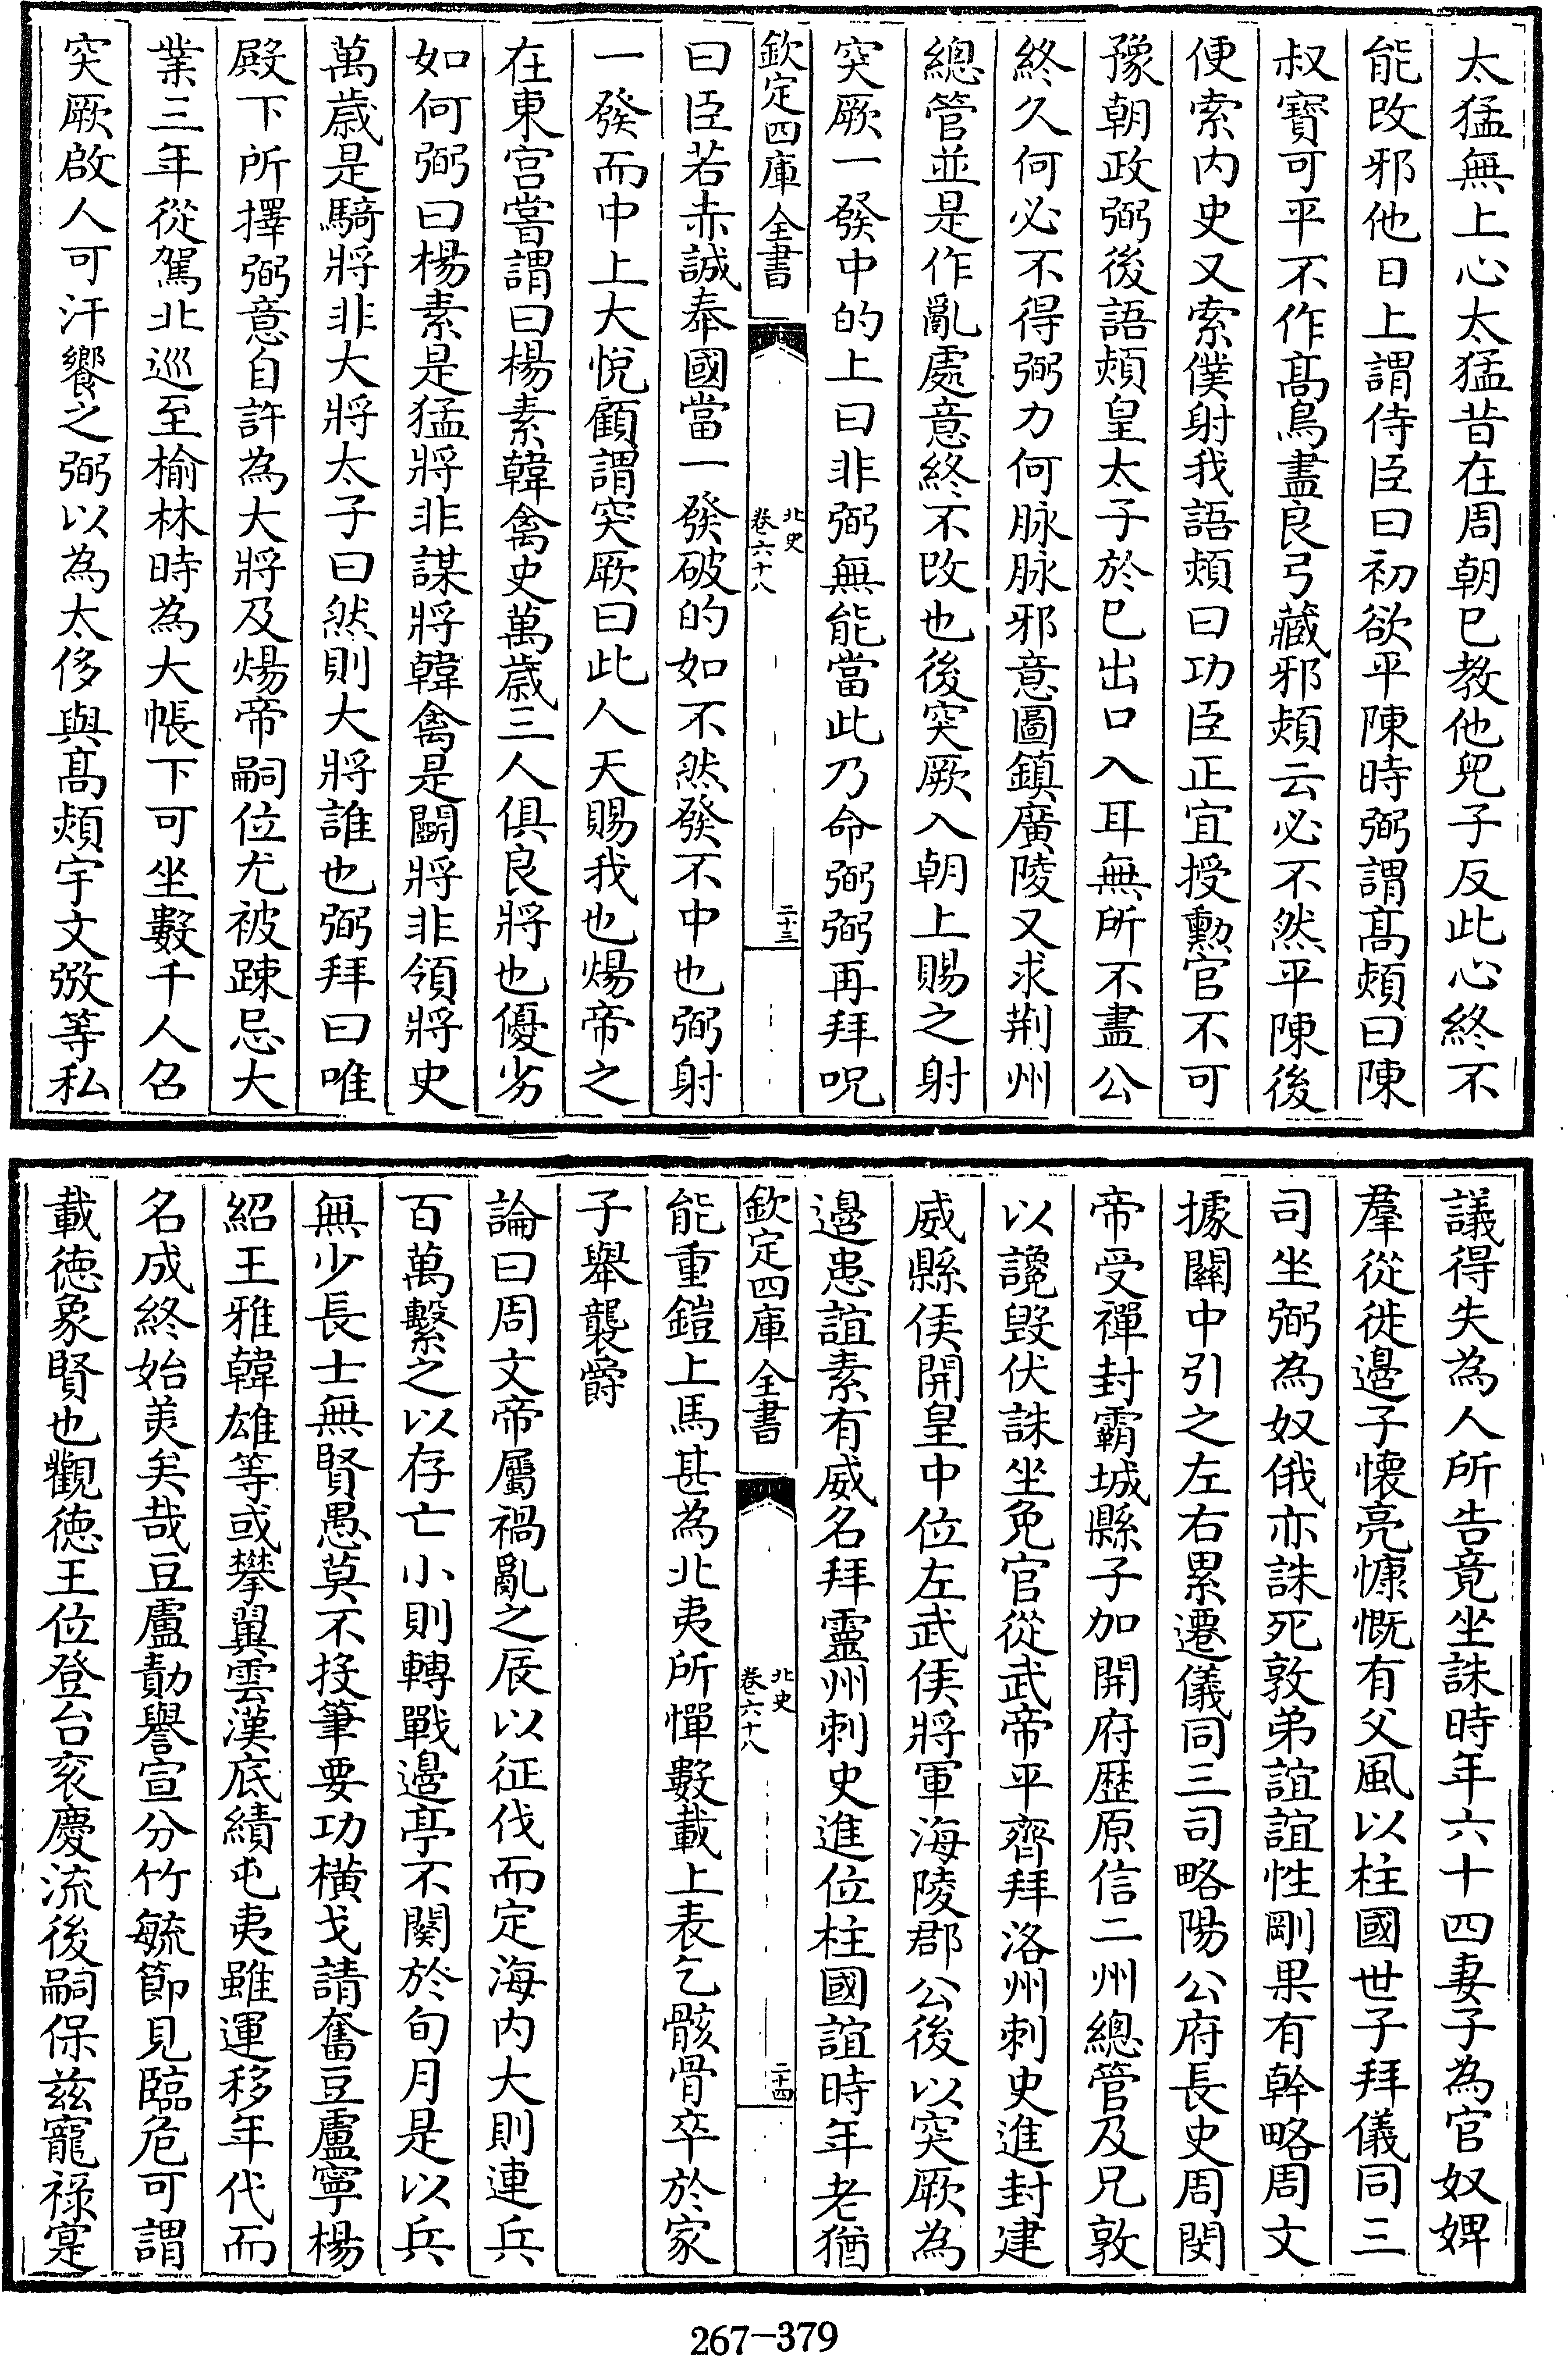 太猛無上心太猛昔在周朝已教他兒子反此心終不
能改邪他日上謂侍臣曰初欲平陳時弼謂髙熲曰陳
叔寶可平不作髙鳥盡良弓藏邪熲云必不然平陳後
便索内史又索僕射我語熲曰功臣正宜授勲官不可
豫朝政弼後語熲皇太子於己出口入耳無所不盡公
終久何必不得弼力何脉脉邪意圖鎮廣陵又求荆州
總管並是作亂處意終不改也後突厥入朝上賜之射
突厥一發中的上曰非弼無能當此乃命弼弼再拜呪
欽定四庫全書
北史
卷六十八
二十三
曰臣若赤誠奉國當一發破的如不然發不中也弼射
一發而中上大悅顧謂突厥曰此人天賜我也煬帝之
在東宫嘗謂曰楊素韓禽史萬嵗三人俱良將也優劣
如何弼曰楊素是猛將非謀將韓禽是鬬將非領將史
萬嵗是騎將非大將太子曰然則大將誰也弼拜曰唯
殿下所擇弼意自許為大將及煬帝嗣位尤被踈忌大
業三年從駕北巡至榆林時為大帳下可坐數千人召
突厥啟人可汗饗之弼以為太侈與髙熲宇文㢸等私
議得失為人所告竟坐誅時年六十四妻子為官奴婢
羣從徙邉子懐亮慷慨有父風以柱國世子拜儀同三
司坐弼為奴俄亦誅死敦弟誼誼性剛果有幹略周文
據關中引之左右累遷儀同三司略陽公府長史周閔
帝受禪封霸城縣子加開府歴原信二州總管及兄敦
以讒毁伏誅坐免官從武帝平齊拜洛州刺史進封建
威縣侯開皇中位左武侯將軍海陵郡公後以突厥為
邉患誼素有威名拜靈州刺史進位柱國誼時年老猶
欽定四庫全書
北史
卷六十八
二十四
能重鎧上馬甚為北夷所憚數載上表乞骸骨卒於家
子舉襲爵
論曰周文帝屬禍亂之辰以征伐而定海内大則連兵
百萬繫之以存亡小則轉戰邉亭不闋於旬月是以兵
無少長士無賢愚莫不投筆要功横戈請奮豆盧寧楊
紹王雅韓雄等或攀翼雲漢底績屯夷雖運移年代而
名成終始美矣哉豆盧勣譽宣分竹毓節見臨危可謂
載徳象賢也觀徳王位登台衮慶流後嗣保兹寵禄寔
267-379